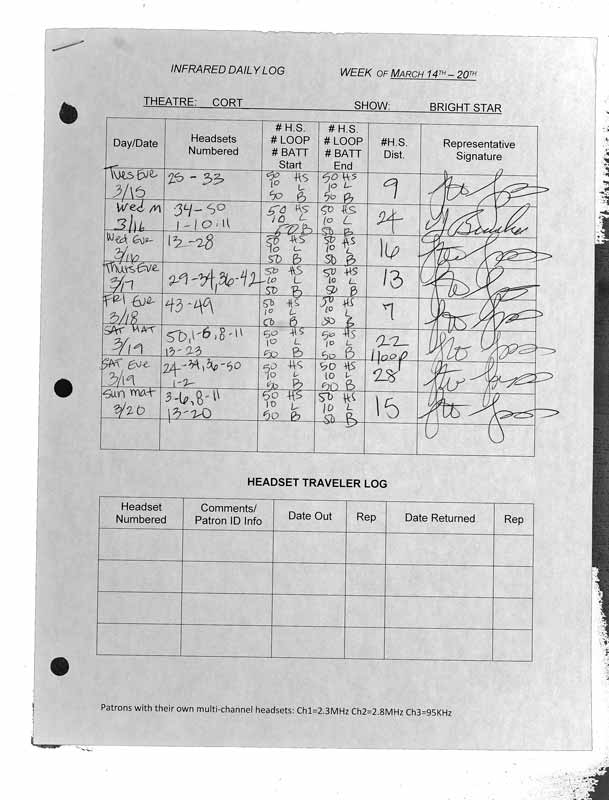 INFRARED DAILY LOG WEEK OF MARCH 14TH – 20TH
THEATRE: CORT SHOW: BRIGHT STAR
Day/Date Headsets Numbered # H.S. # LOOP # BATT Start # H.S. # LOOP # BATT End #H.S. Dist. Representative Signature
Tues Eve 3/15 25 - 33 50 HS 10 L 50 B 50 HS 10 L 50 B 9
Wed M 3/16 34-50 1-10,11 50 HS 10 L 50 B 50 HS 10 L 50 B 24
Wed Eve 3/16 13-28 50 HS 10 L 50 B 50 HS 10 L 50 B 16
Thurs Eve 3/17 29-34,36-42 50 HS 10 L 50 B 50 HS 10 L 50 B 13
FRI Eve 3/18 43-49 50 HS 10 L 50 B 50 HS 10 L 50 B 7
SAT MAT 3/19 50,1-6,8-11 13-23 50 HS 10 L 50 B 50 HS 10 L 50 B 22 1loop
SAT Eve 3/19 24-34,36-50 1-2 50 HS 10 L 50 B 50 HS 10 L 50 B 28
Sun mat 3/20 3-6,8-11 13-20 50 HS 10 L 50 B 50 HS 10 L 50 B 15
HEADSET TRAVELER LOG
Headset Numbered Comments/ Patron ID Info Date Out Rep Date Returned Rep
Patrons with their own multi-channel headsets: Ch1=2.3MHz Ch2=2.8MHz Ch3=95KHz